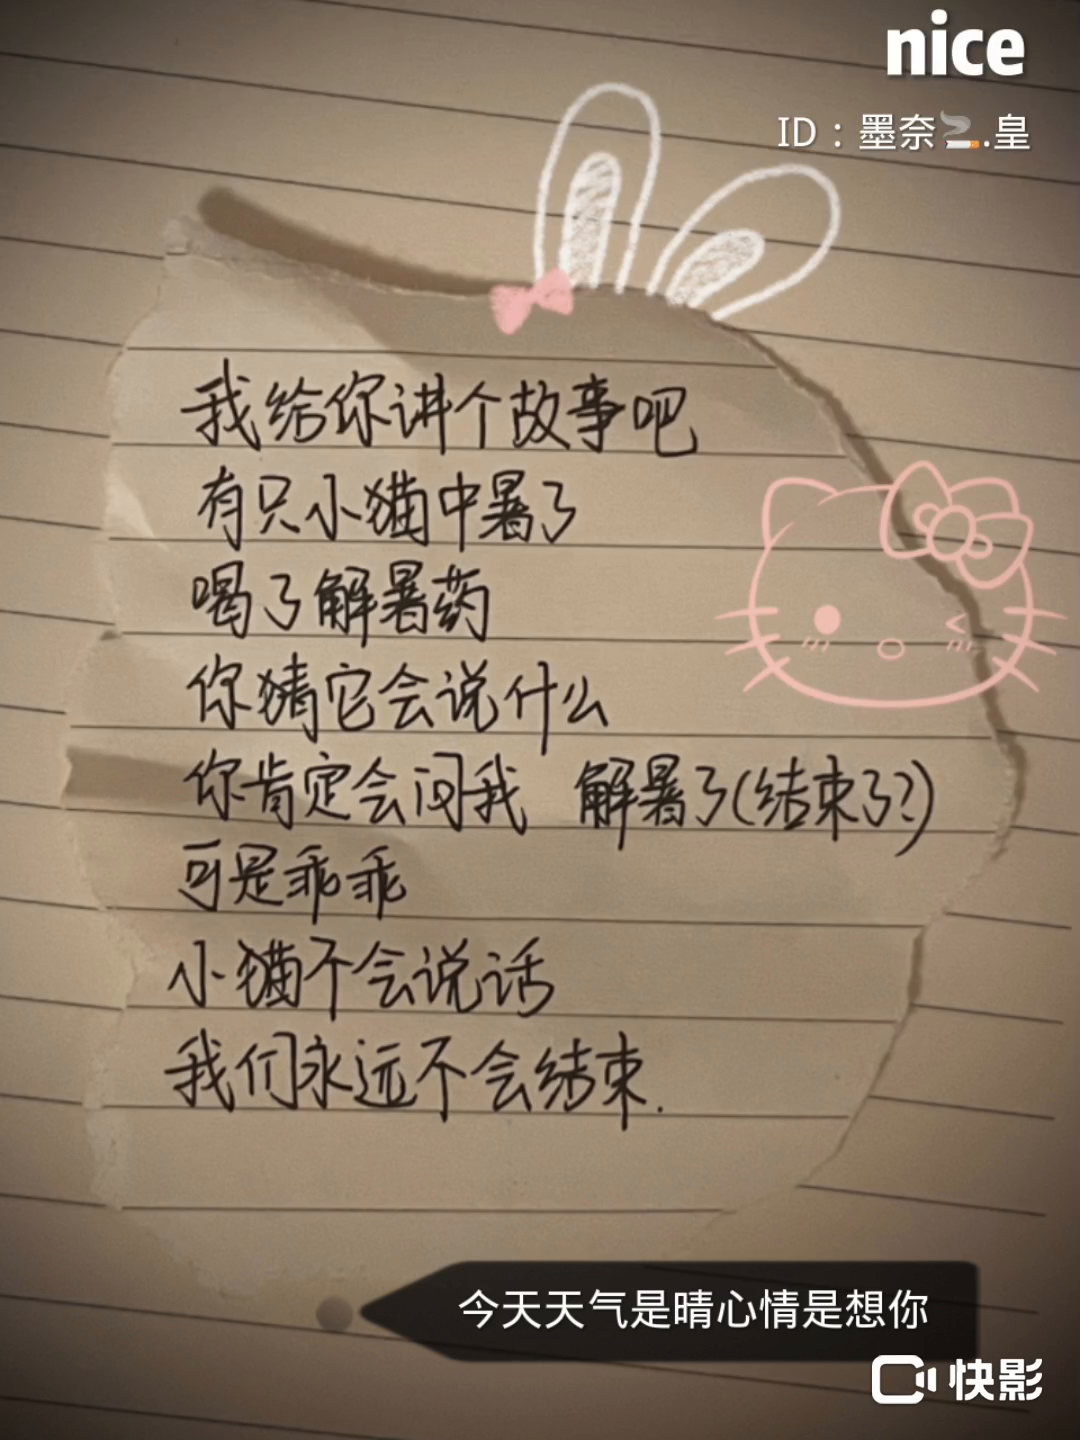 nice
ID：墨奈🚬.皇
我给你讲个故事吧
有只小猫中暑了
喝了解暑药
你猜它会说什么
你肯定会问我 解暑了(结束了?)
可是乖乖
小猫不会说话
我们永远不会结束.
今天天气是晴心情是想你
快影